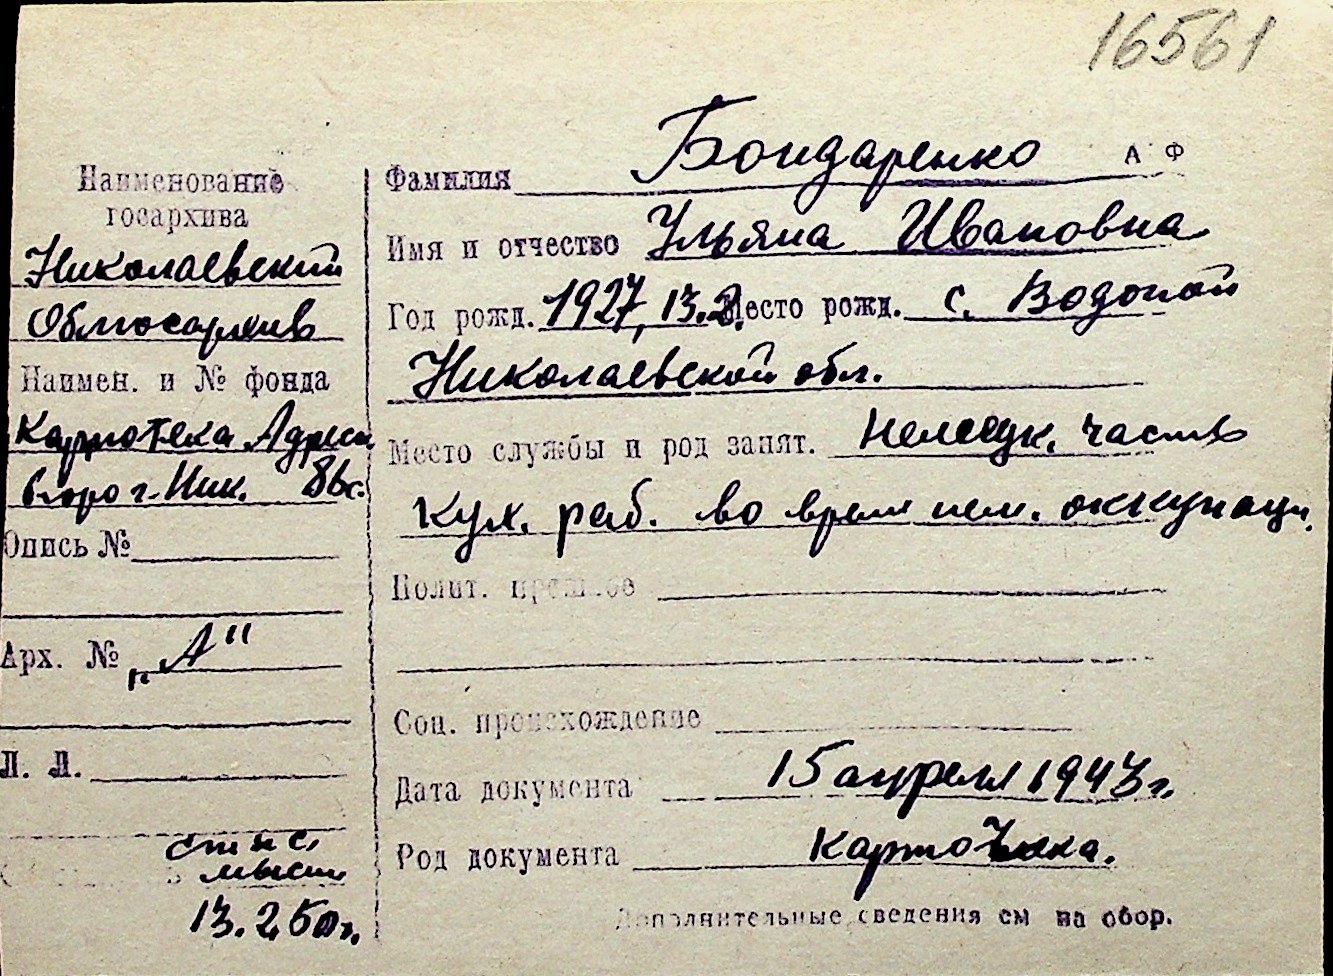 16561
Наименование
госархива
Николаевский
Облгосархив
Наимен. и № фонда
Картотека Адресн
бюро г. Ник.
Опись №
Арх. № „А"
Л. Л.
13.2.50г.
Фамилия Бондаренко А Ф
Имя и отчество Ульяна Ивановна
Год рожд. 1927, 13.2. Место рожд. с. Водопой
Николаевской обл.
Место службы и род занят. часть
Кух. раб. во время нем. оккупаци.
Полит.
Соц. происхождение
Дата документа 15 апреля 1943 г.
Род документа Карточка.
Дополнительные сведения см на обор.